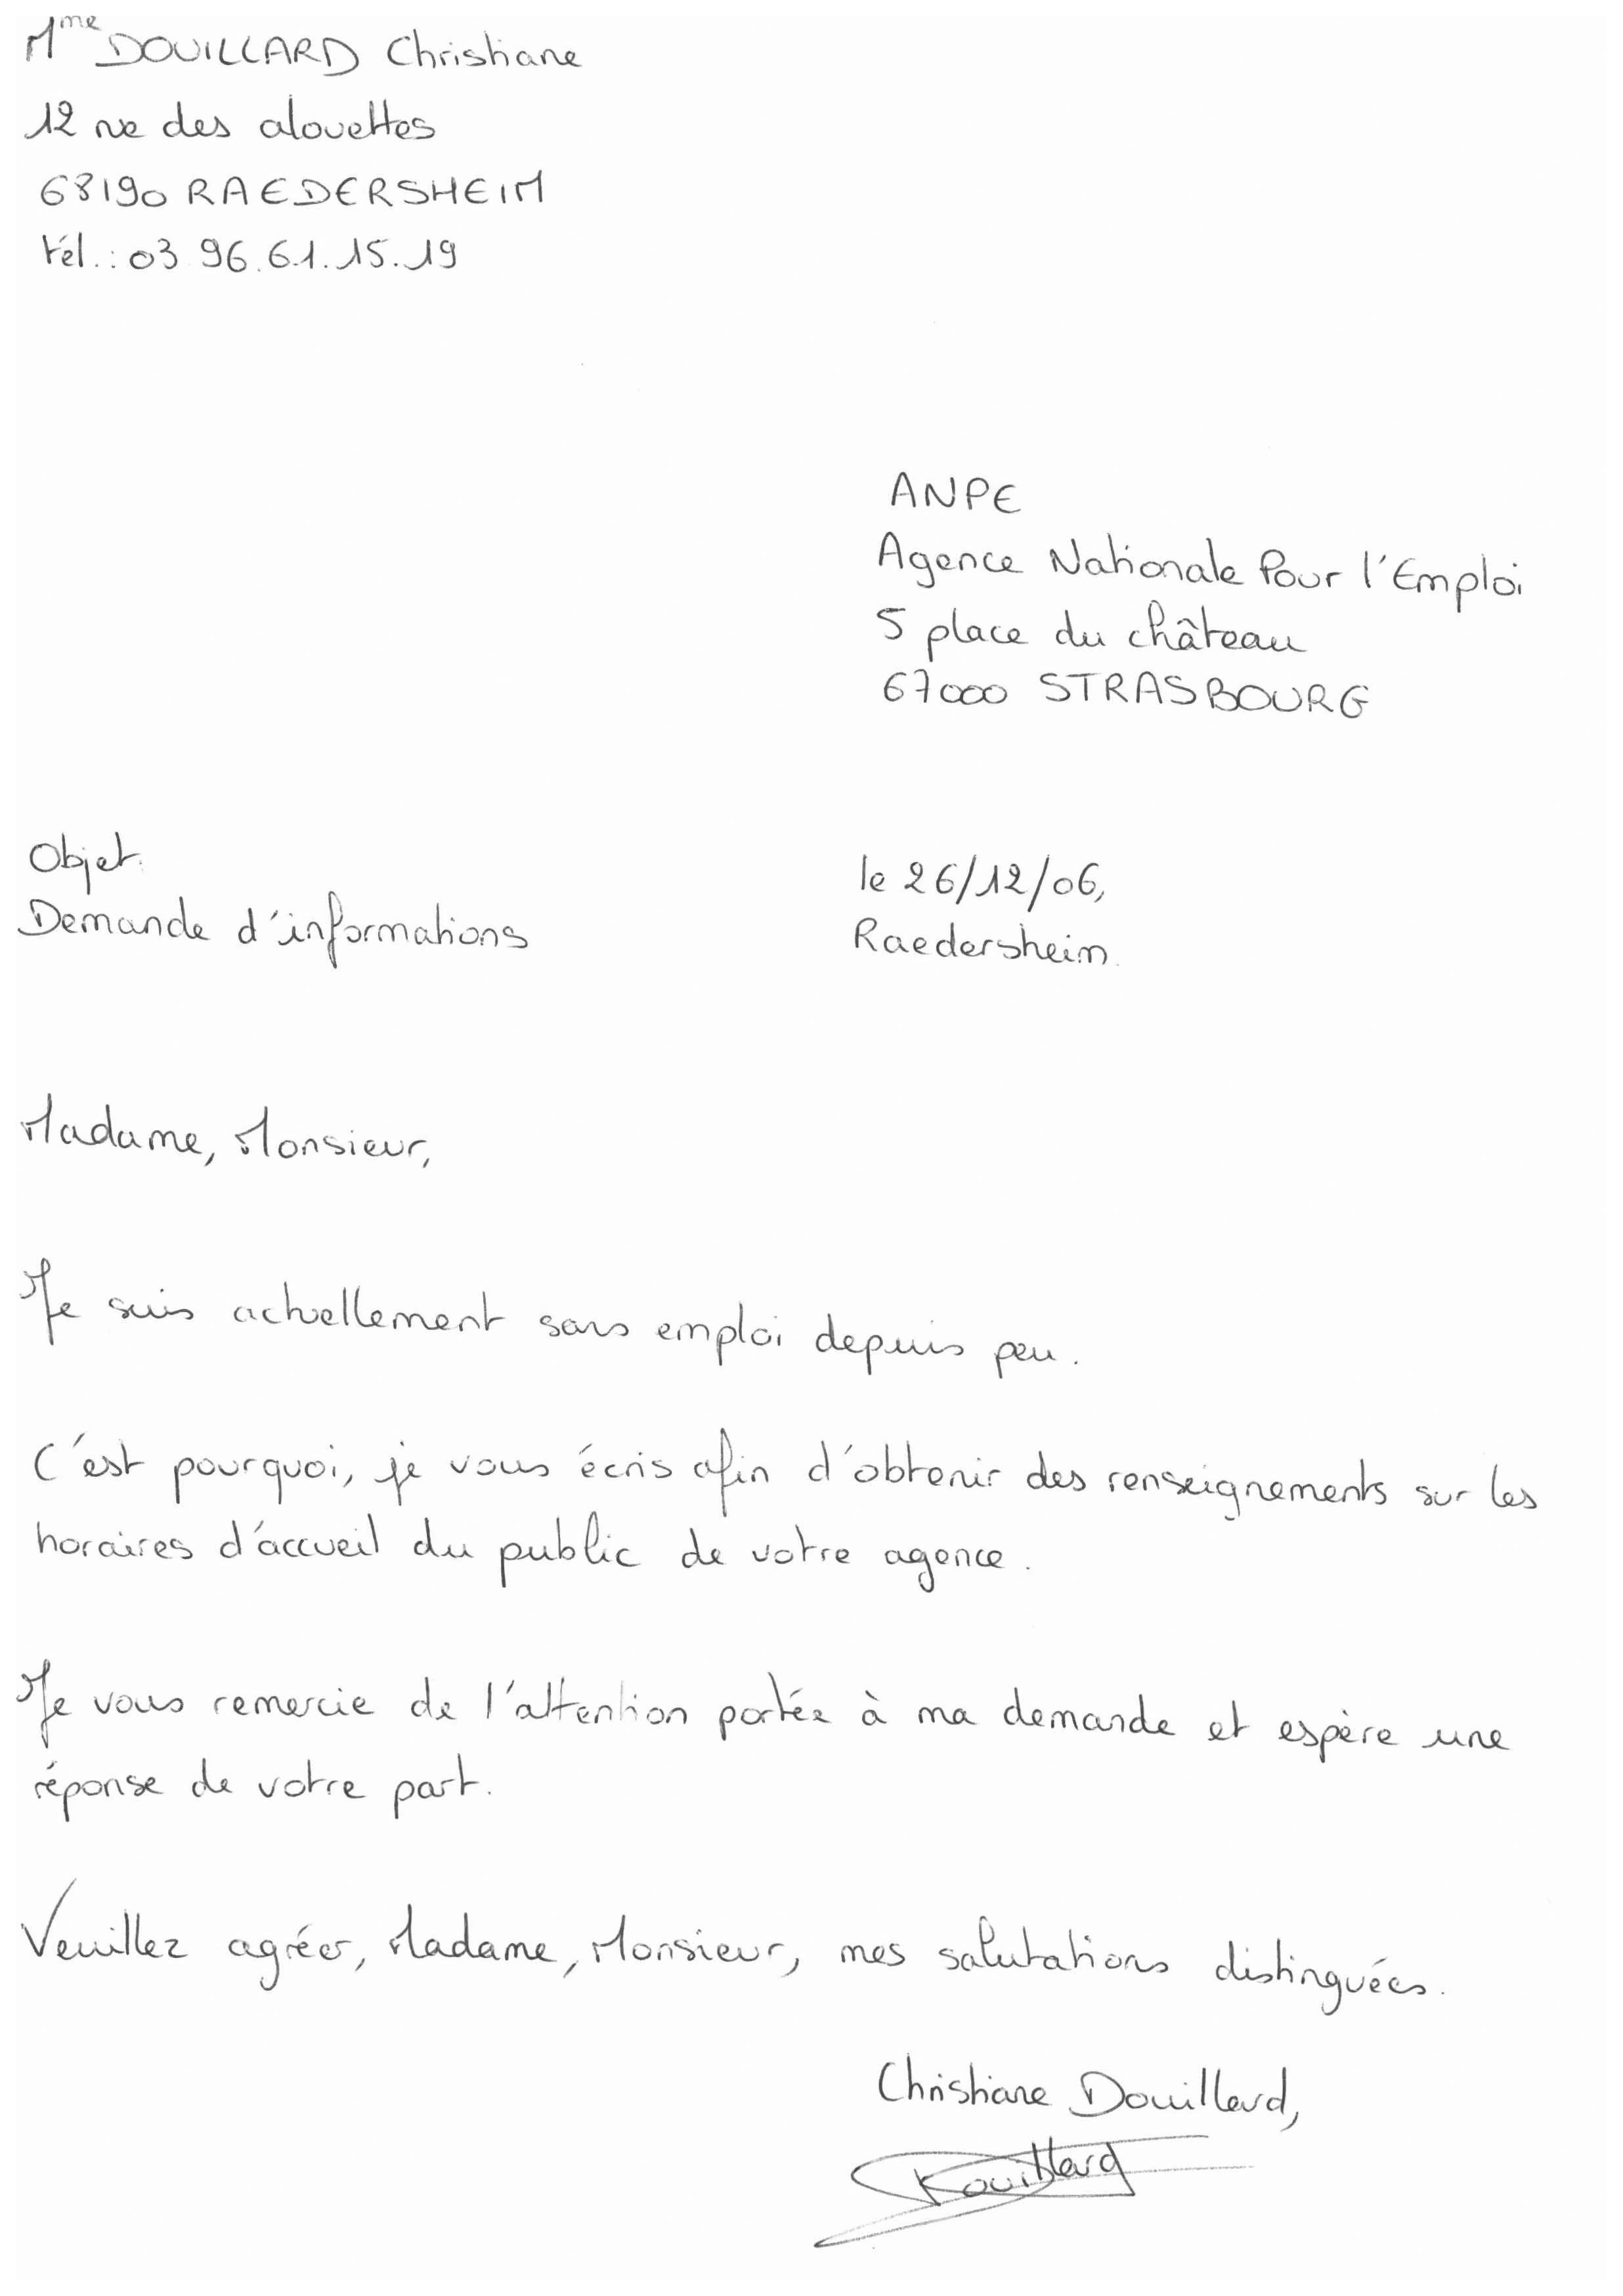 Mme DOUILLARD Christiane
12 rue des alouettes
68190 RAEDERSHEIM
tél.: 03 96.61.15.19
ANPE
Agence Nationale Pour l'Emploi
5 place du château
67000 STRASBOURG
Objet:
Demande d'informations
le 26/12/06,
Raedersheim.
Madame, Monsieur,
Je suis actuellement sans emploi depuis peu.
C'est pourquoi, je vous écris afin d'obtenir des renseignements sur les
horaires d'accueil du public de votre agence.
Je vous remercie de l'attention portée à ma demande et espère une
réponse de votre part.
Veuillez agréer, Madame, Monsieur, mes salutations distinguées.
Christiane Douillard,
Douillard